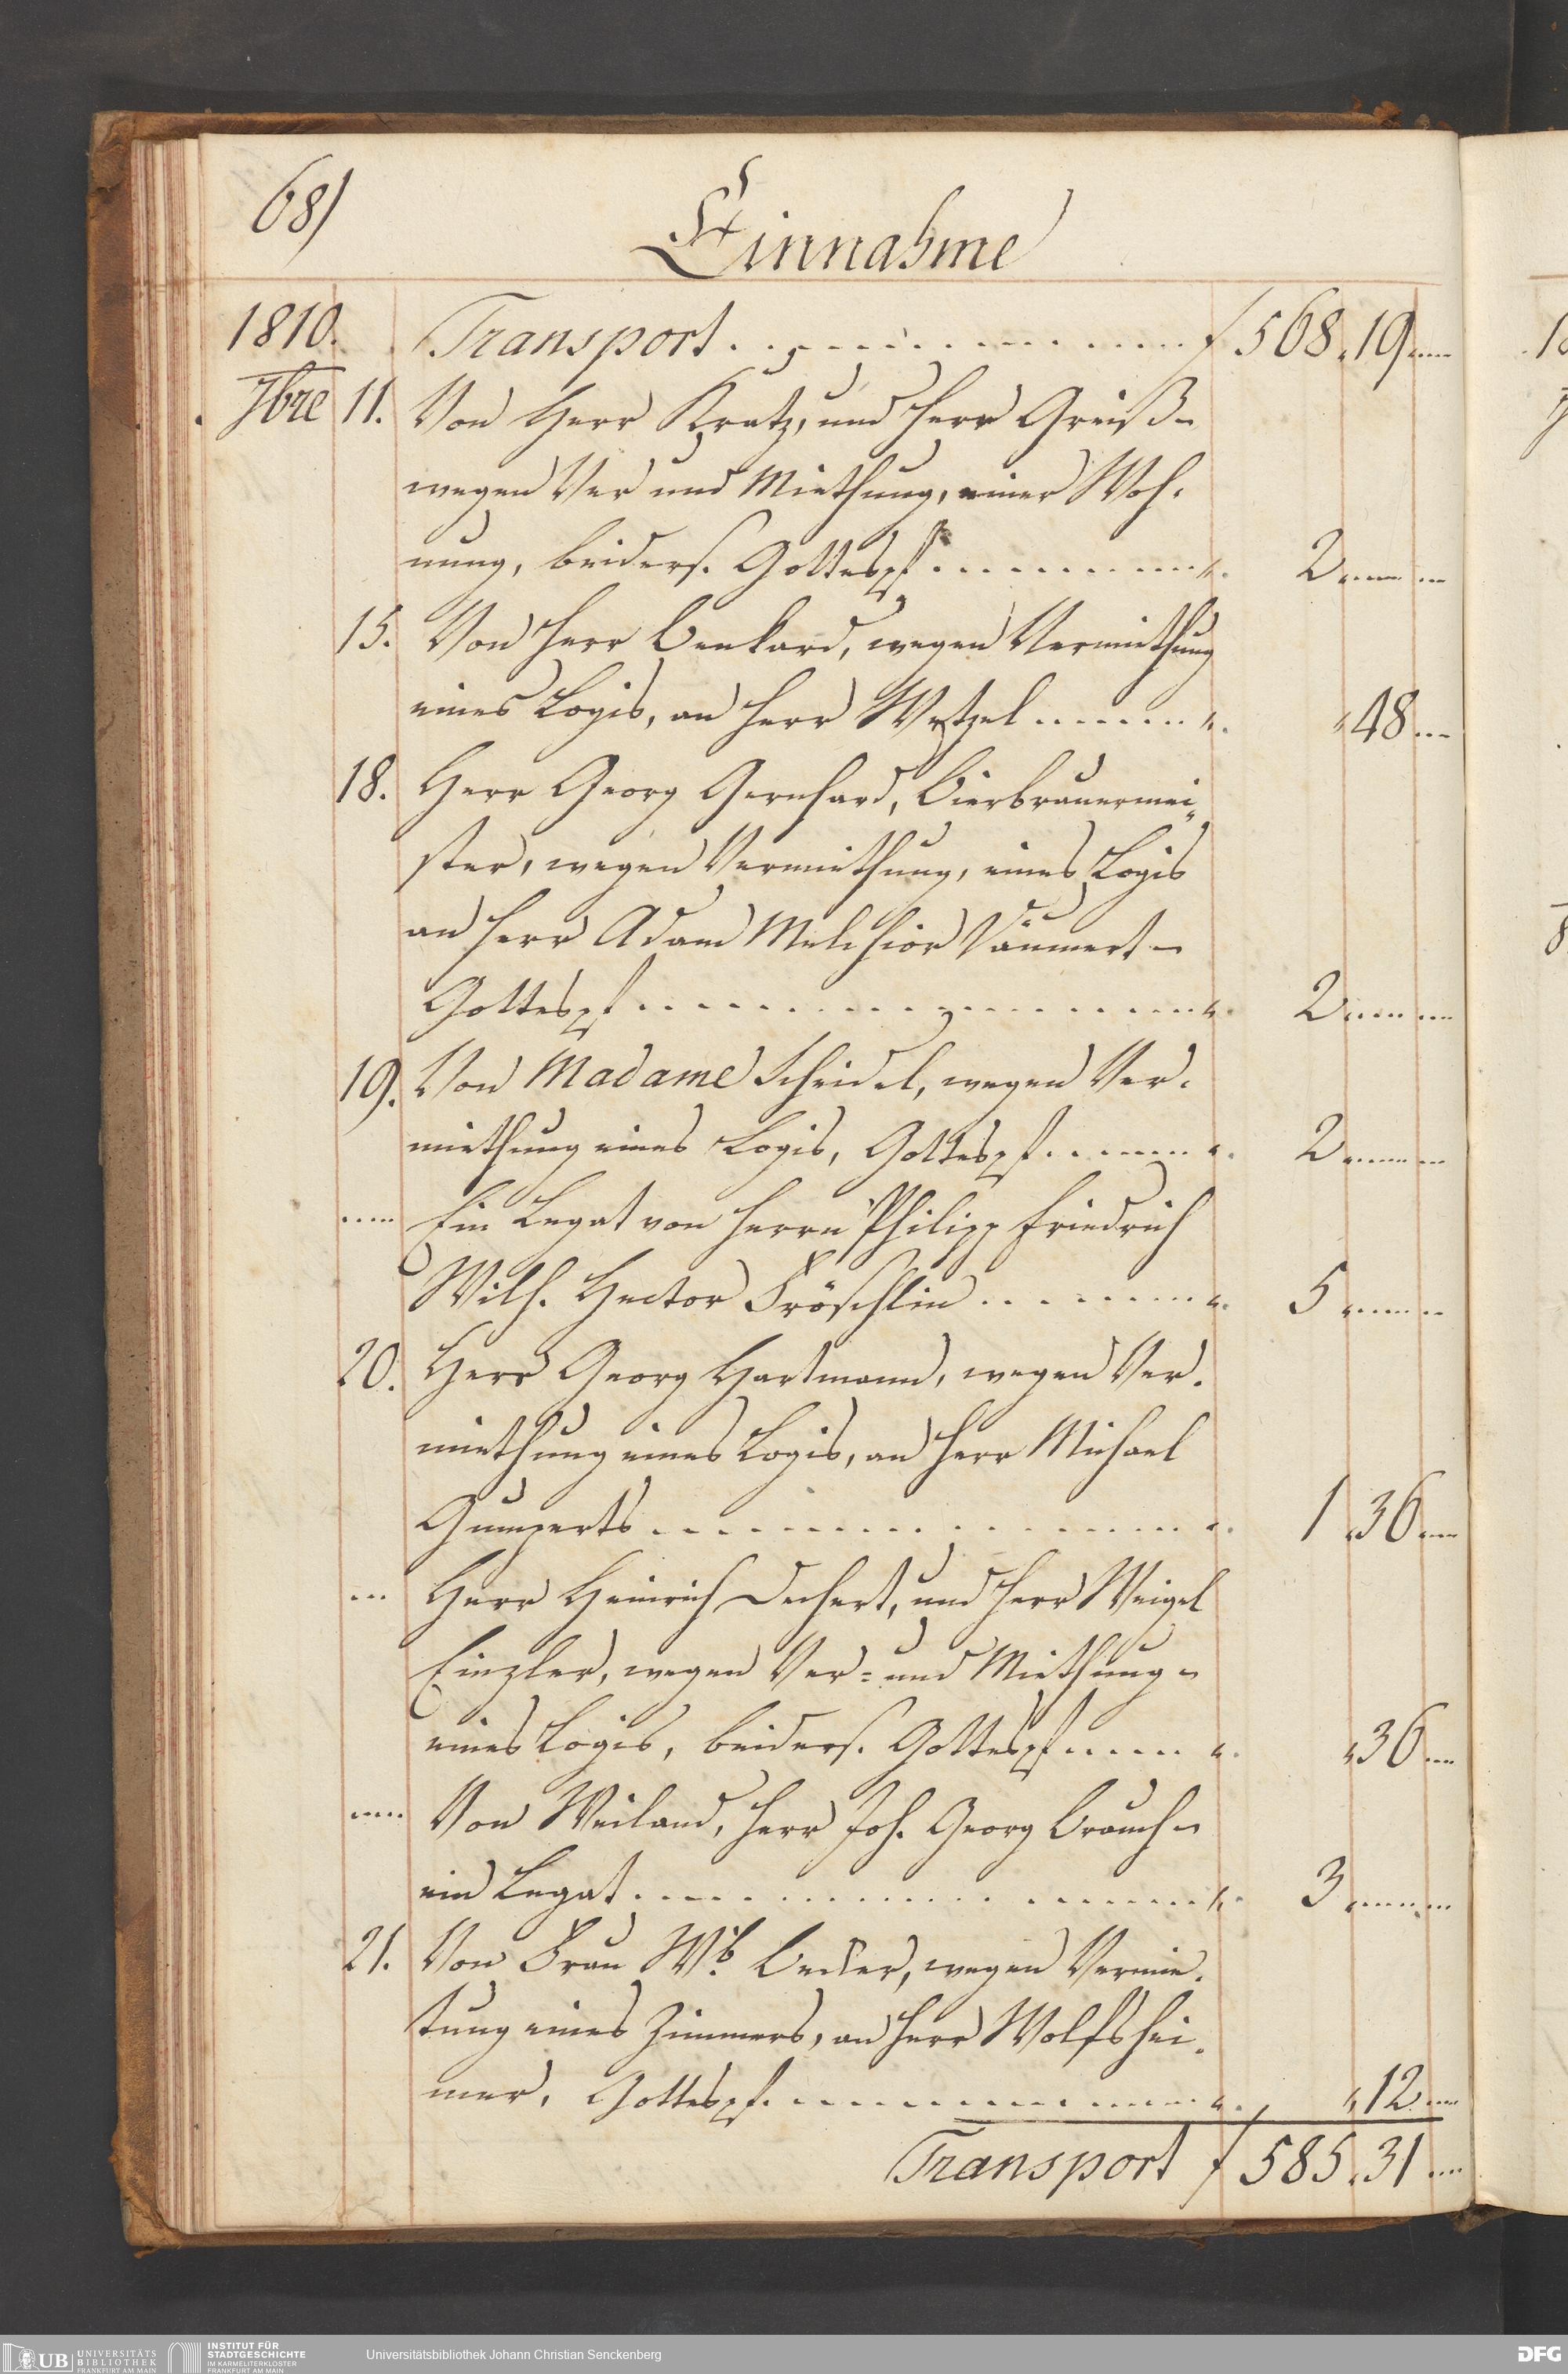 68)
Einnahme
1810. Transport . . . . . . . . f 568.19....
7bre 11. Von Herr Kratz, und Herr Greiß-
wegen Ver und Miethung, einer Woh-
nung, beiders. Gottespf. . . . . . . . 2.........
15. Von Herr Benkard, wegen Vermiethung
eines Logis, an Herr Wetzel . . . . . . . " 48....
18. Herr Georg Gernhard, Bierbrauermei-
ster, wegen Vermiethung, eines Logis
an Herr Adam Melchior
Gottespf. . . . . . . . . . . . 2.........
19. Von Madame Scheidel, wegen Ver-
miethung eines Logis, Gottespf. . . . . . 2.........
..... Ein Legat von Herrn Philipp Friedrich
Wilh. Hector Fröschlin . . . . . . . . 5.........
20. Herr Georg Hartmann, wegen Ver-
miethung eines Logis, an Herr Michael
Gumperts . . . . . . . . . . . . 1.36....
... Herr Heinrich Dechert, und Herr Weigel
Einzler, wegen Ver- und Miethung-
eines Logis, beiders. Gottespf. . . . . . " 36....
..... Von Weiland, Herr Joh. Georg Brauch-
ein Legat . . . . . . . . . . . . 3.........
21. Von Frau Wb. Becker, wegen Vermie-
tung eines Zimmers, an Herr Wolfshei-
mer, Gottespf. . . . . . . . . . . " 12....
Transport f 585.31....
UB UNIVERSITÄTS
BIBLIOTHEK
FRANKFURT AM MAIN
INSTITUT FÜR
STADTGESCHICHTE
IM KARMELITERKLOSTER
FRANKFURT AM MAIN
Universitätsbibliothek Johann Christian Senckenberg
DFG